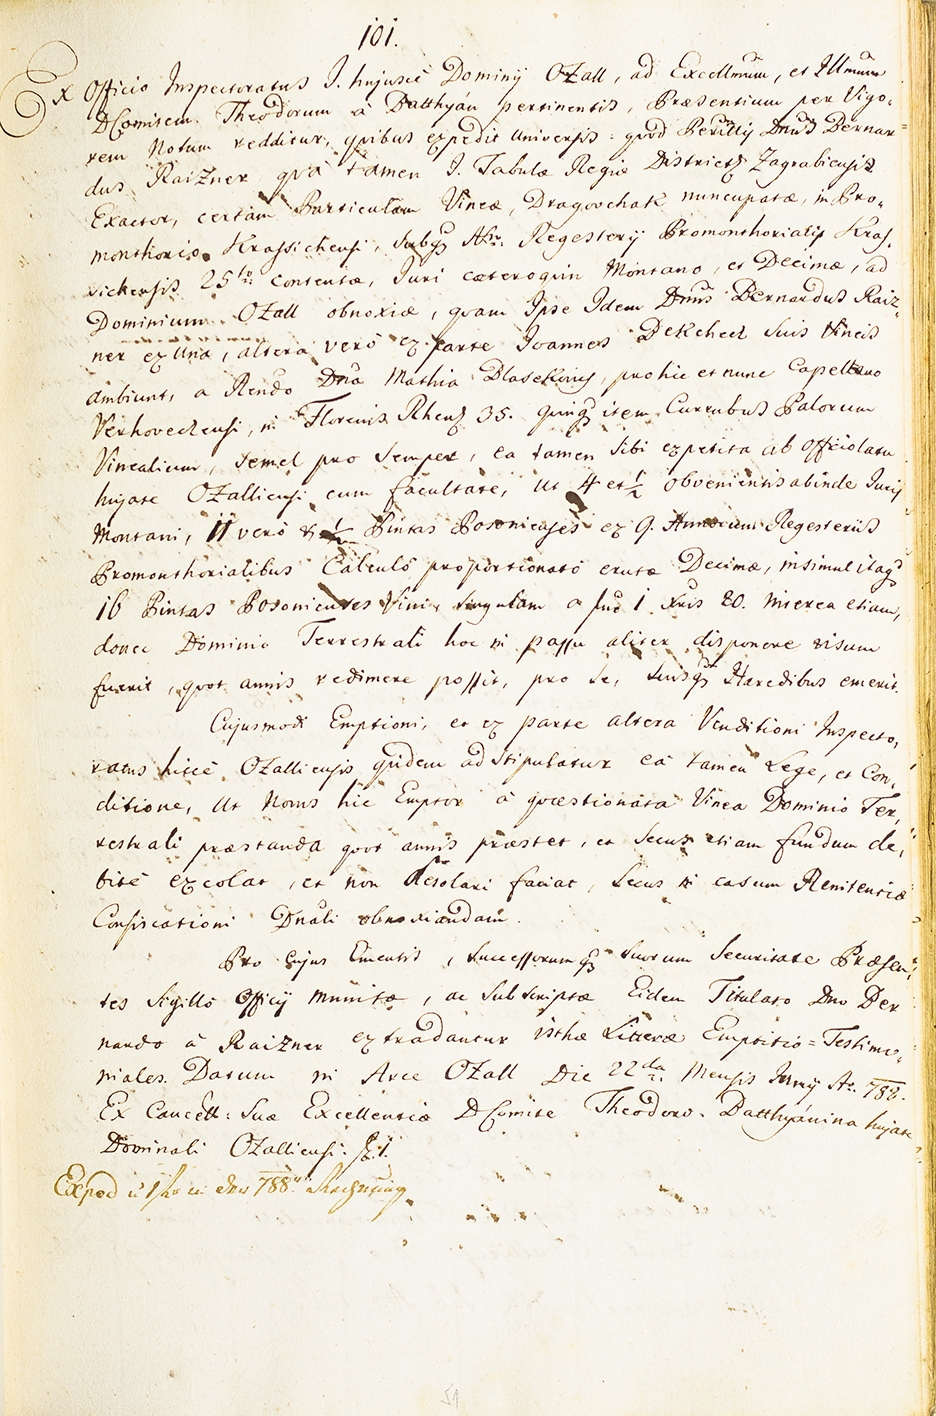 101.
Ex Officio Inspectoratus I. hujus𝑐ê Dominij Ozall, ad Excellmum, et Illmum
DComitem Theodorum à Batthyán pertinentis, Præsentium per Vigo,
rem Notum redditur, quibus expedit universis: quod Perillis Dnus Bernar=
dus Raizner quà tamen I. Tabulæ Regiæ Districtus Zagrabiensis
Exactor, certam Particulam Vineæ, Dragovchak nuncupatæ, in Pro,
monthorio Krassichensi, subq Nro. Regesterij Promonthorialis Kras,
sichensis 25to contentæ, Juri cæteroquin Montano, et Decimæ, ad
Dominium Ozall obnoxiæ, quam Ipse Idem Dnus Bernardus Raiz,
ner ex una, altera verò ex parte Joannes Dekchech suis Vineis
ambiunt, a Rendo Dno Mathia Blasekovich, pro hic et nunc Capellano
Verhovechensi, in Florenis Rhens 35. quinqs item Curribus Palorum
Vinealium, semel pro semper, ea tamen sibi expetita ab Officiolatu
hujate Ozalliensi cum facultate, ut 4 et ½ obvenientis abinde Juris
Montani, 11 verò & ½ Pintas Posonienses ex 9. Annorum Regesteriis
Promonthorialibus Calculô proportionatô erutæ Decimæ, insimul itaqs
16 Pintas Posonienses Vini, singulam a sue 1 Xris 20. interea etiam,
donec Dominio Terrestrali hoc in passu aliter disponere visum
fuerit, quot annis redimere possit, pro se, suisqs Hæredibus emerit.
Cujusmodi Emptioni, et ex parte altera Venditioni Inspecto,
ratus hicce Ozalliensis quidem adstipulatur eâ tamen Lege, et Con,
ditione, Ut Novus hic Emptor à quæstionata Vinea Dominio Ter,
restrali præstanda quot annis præstet, et secus etiam fundum de,
bitè excolat, et non desolari faciat, secus in casum Renitentiæ
Confiscationi Dnali obnoxiandam.
Pro cujus Ementis, successorumqs suorum Securitate Præsen,
tes Sigillo Officij munitæ, ac subscriptæ Eidem Titulato Dno Ber
nardo à Raizner extradantur isthæ Litteræ Emptitio=Testimo,
niales. Datum in Arce Ozall Die 22da Mensis Juny Ao. 788.
Ex Cancell: Suæ Excellentiæ DComite Theodoro Batthyánina hujate
Dominali Ozalliensi.
51